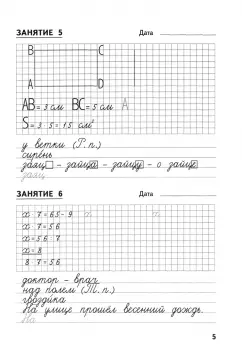 ЗАНЯТИЕ 5 Дата
B C
A D
AB = 3 см BC = 5 см A
S = 3 · 5 = 15 см²
у ветки (Р.п.)
сирень
заяц – зайца – зайцу – о зайце
заяц
ЗАНЯТИЕ 6 Дата
x · 7 = 65 - 9 x
x · 7 = 56
x = 56 : 7
x = 8
8 · 7 = 56
доктор – врач
над полем (Т.п.)
гвоздика
На улице прошёл весенний дождь.
На
5